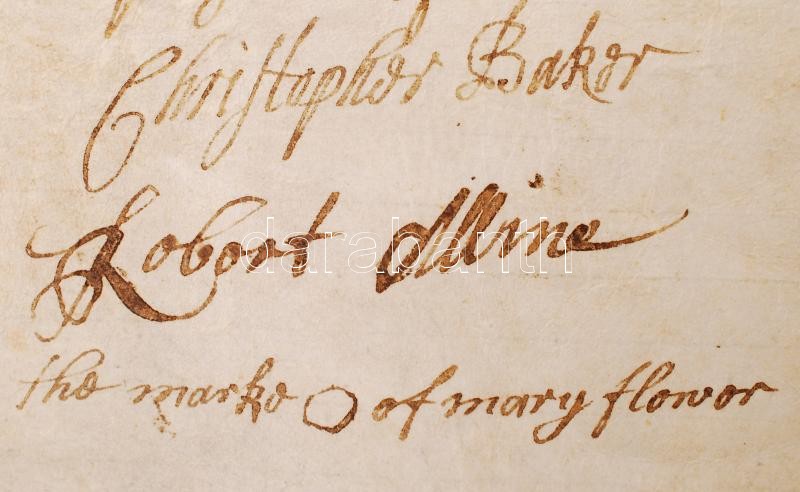 Christopher Baker
Robert Alline
the marke O of mary flower
darabanth